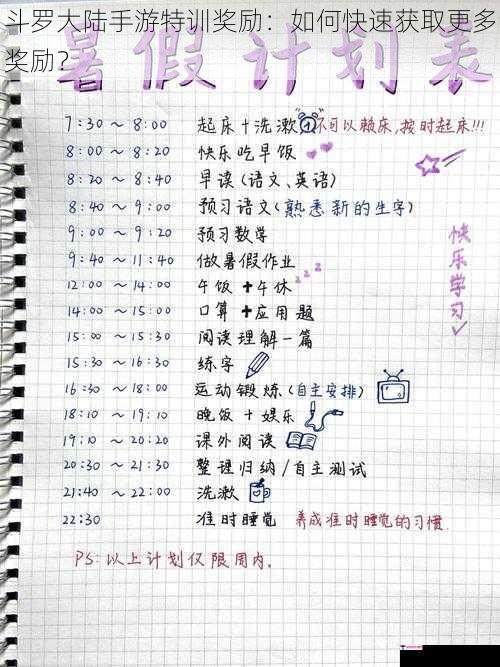 斗罗大陆手游特训奖励：如何快速获取更多
奖励？
暑假计划表
7:30～8:00 起床+洗漱 不可以赖床,按时起床!!!
8:00～8:20 快乐吃早饭
8:20～8:40 早读(语文、英语)
8:40～9:00 预习语文(熟悉新的生字)
9:00～9:20 预习数学
9:40～11:40 做暑假作业
12:00～14:00 午饭+午休 zzz
14:00～15:00 口算+应用题
15:00～15:30 阅读理解一篇
15:30～16:30 练字
16:30～18:00 运动锻炼(自主安排)
18:10～19:10 晚饭+娱乐
19:10～20:20 课外阅读
20:30～21:30 整理归纳/自主测试
21:40～22:00 洗漱
22:30 准时睡觉 养成准时睡觉的习惯.
快乐学习✓
PS:以上计划仅限周内.